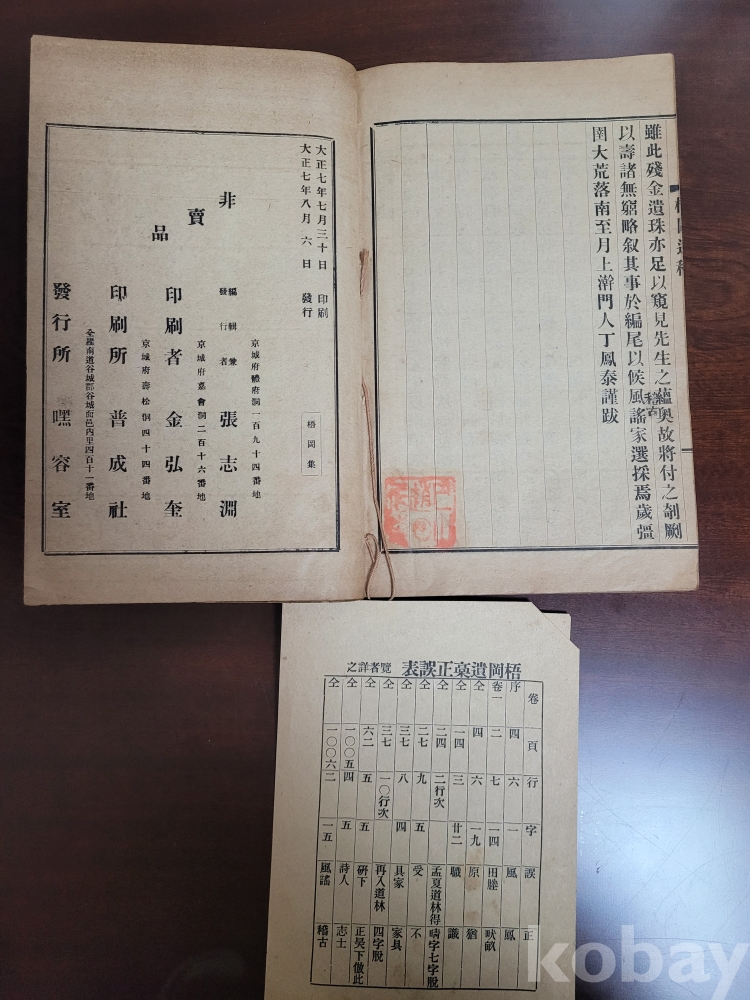 雖此殘金遺珠亦足以窺見先生之蘊奧故將付之剞劂
以壽諸無窮略叙其事於編尾以候風謠家選採焉歲彊
圉大荒落南至月上澣門人丁鳳泰謹跋
稽古
大正七年七月三十日 印刷
大正七年八月 六日 發行
非賣品
梧岡集
京城府體府洞一百九十四番地
編輯兼發行者 張志淵
京城府嘉會洞二百十六番地
印刷者 金弘奎
京城府壽松洞四十四番地
印刷所 普成社
仝羅南道谷城郡谷城面邑內里四百十一番地
發行所 嘿容室
梧岡遺稾正誤表 覽者詳之
卷 頁 行 字 誤 正
序 四 六 一 風 鳳
卷一 二 七 一四 田塍 畎畝
仝 四 六 一九 原 猶
仝 一四 三 廿二 職 識
仝 二四 二行次 孟夏道林得 晴字七字脫
仝 二七 九 五 受 不
仝 三七 八 四 具家 家具
仝 三七 一〇行次 再入道林 四字脫
仝 六二 五 五 硏下 正吳下倣此
仝 一〇〇五 四 五 詩人 志士
仝 一〇〇六 二 一五 風謠 稽古
kobay